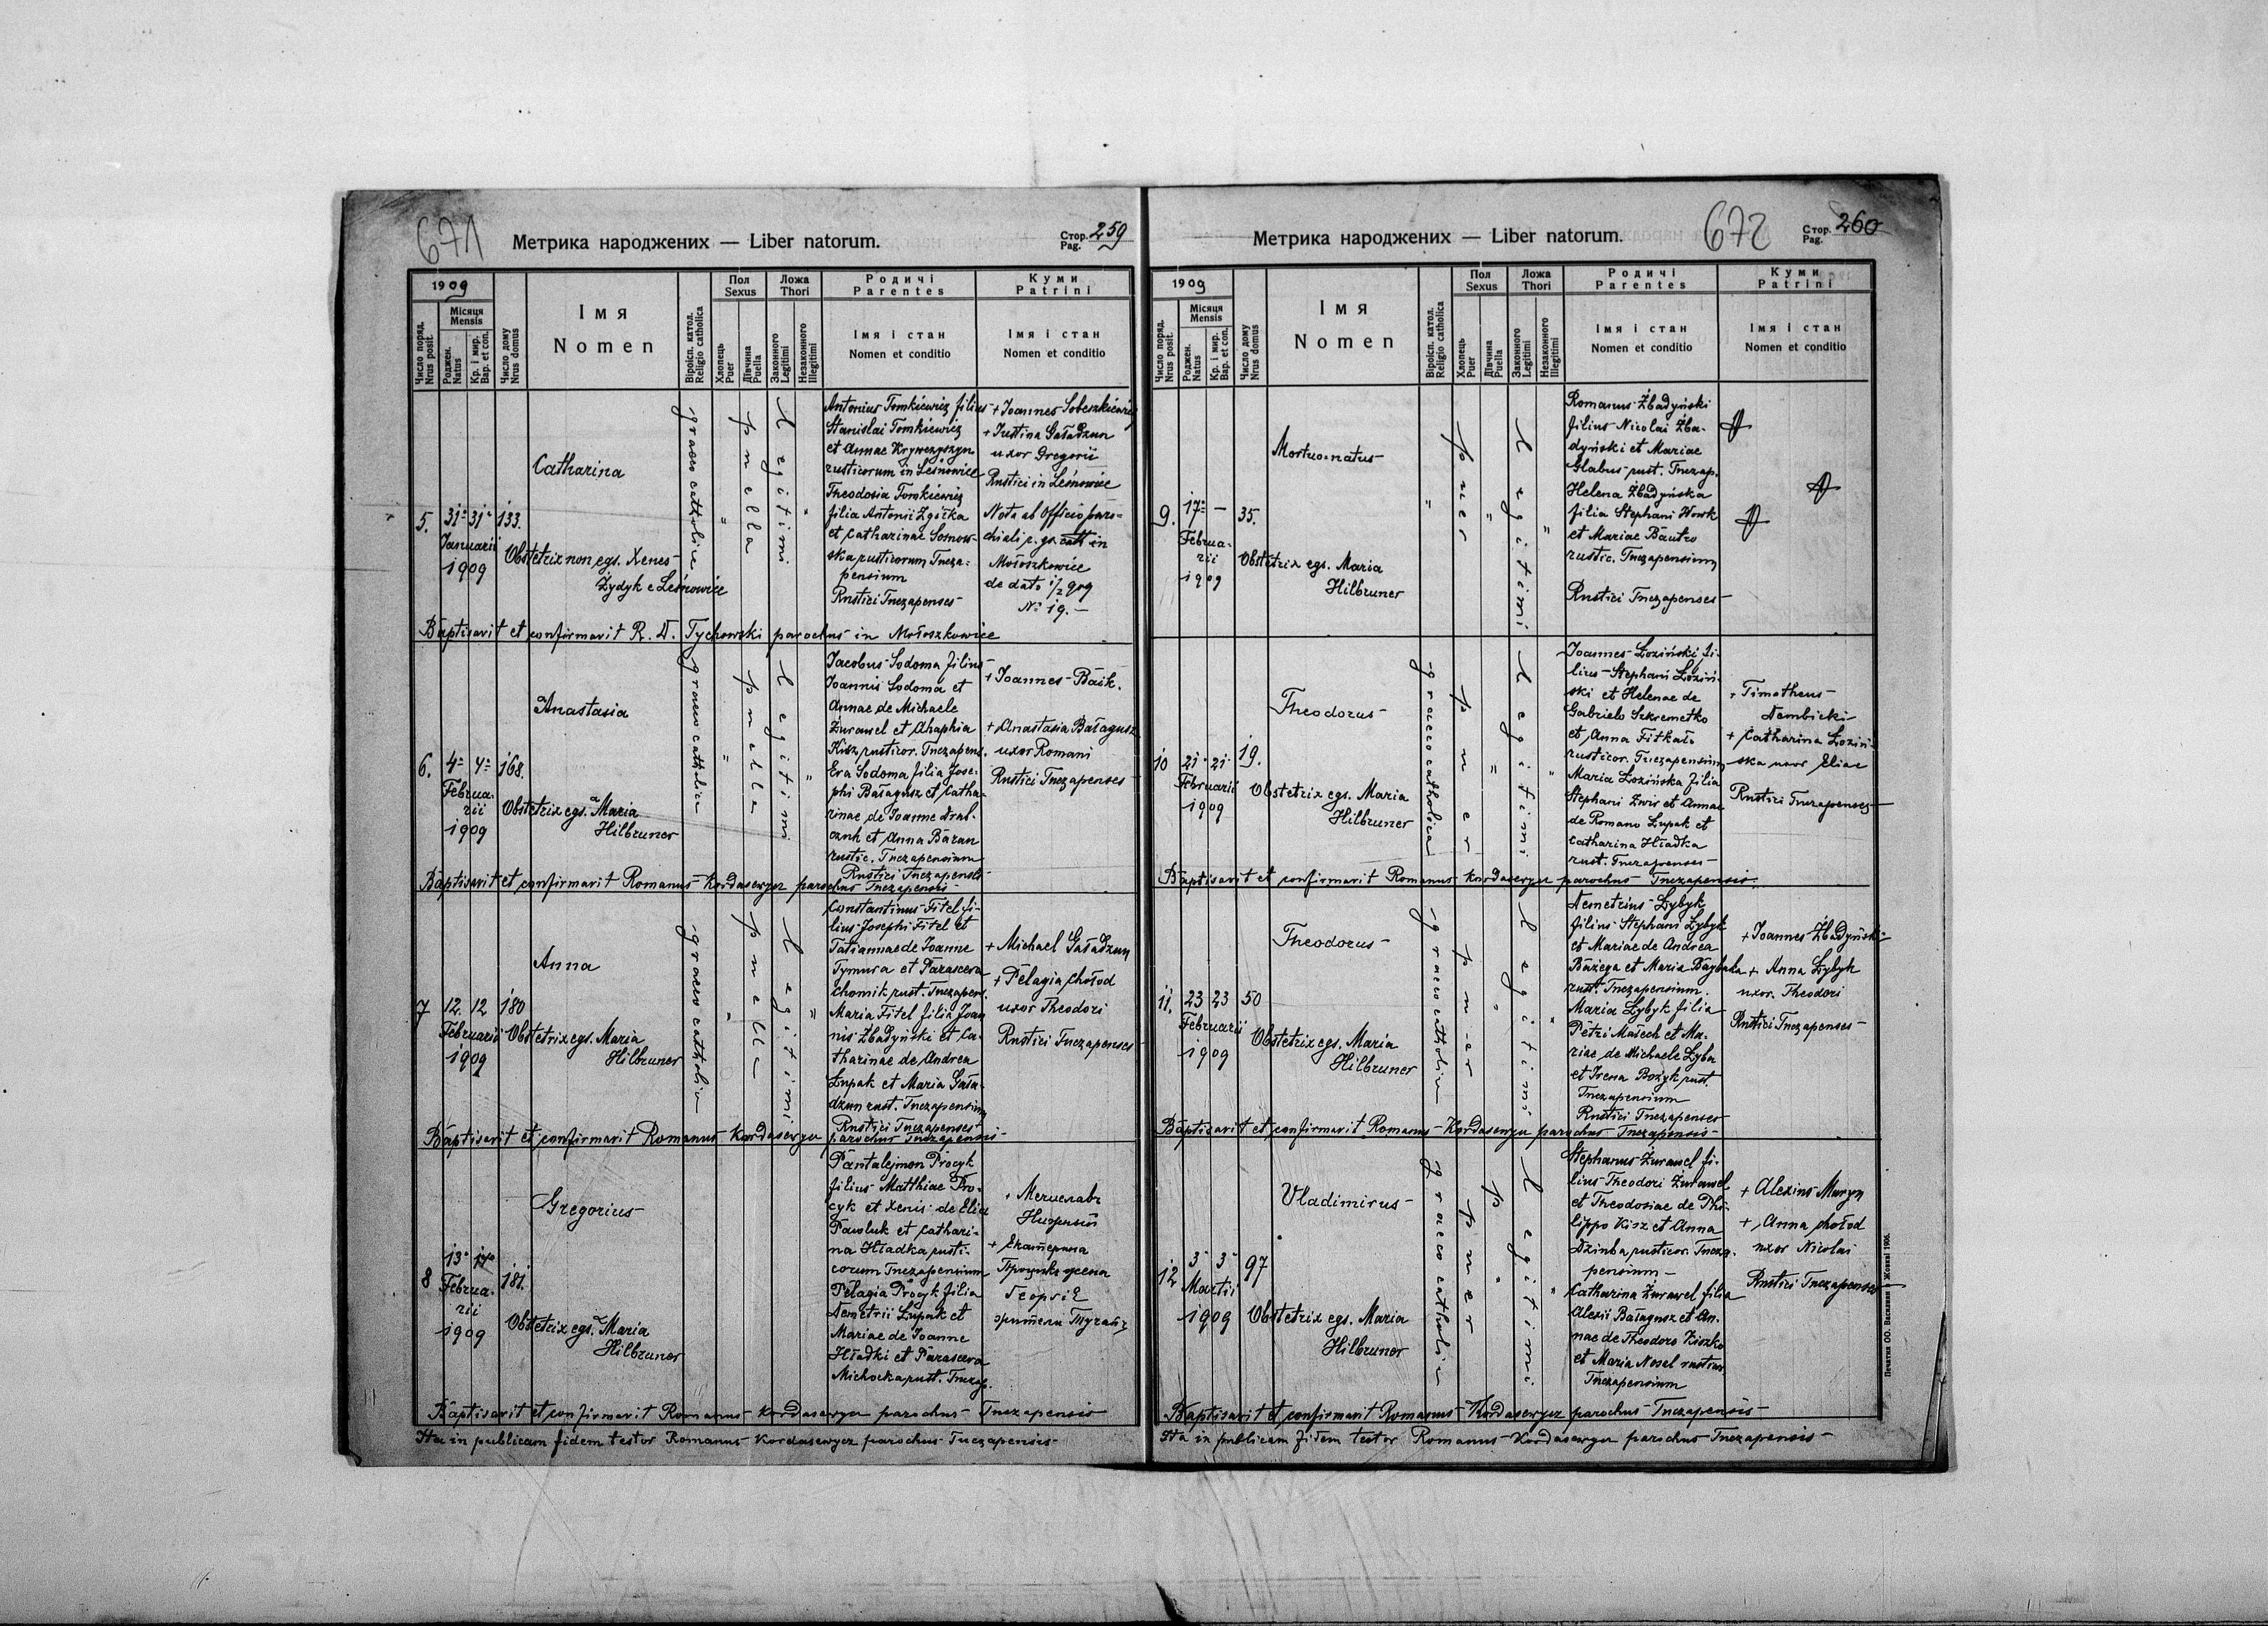 671
Метрика народжених — Liber natorum.
Стор. 259
Pag.
1909
Число поряд.
Nrus posit.
Місяця
Mensis
Роджен.
Natus
Кр. і мир.
Bap. et con.
Число дому
Nrus domus
Імя
Nomen
Віроісп. катол.
Religio catholica
Пол
Sexus
Хлопець
Puer
Дівчина
Puella
Ложа
Thori
Законного
Legitimi
Незаконного
Illegitimi
Родичі
Parentes
Імя і стан
Nomen et conditio
Куми
Patrini
Імя і стан
Nomen et conditio
5.
31 31
Januarii
1909
133.
Catharina
Obstetrix non egs. Xenes
Żydyk e Leśnowice
graeco catholica
puella
Legitimi
Antonius Tomkiewicz filius
Stanislai Tomkiewicz
et Annae Krywczyszyn
rusticorum in Leśnowice
Theodosia Tomkiewicz
filia Antonii Zgirka
et Catharinae Sosnow-
ska rusticorum Tucza-
pensium
Rustici Tuczapenses
+ Joannes Sobeszkiewicz
+ Justina Gaładzun
uxor Gregorii
Rustici in Leśnowice
Nota ab Officio paro-
chiali r. gr. cath in
Mołoszkowice
de dato 1/2 909
No 19.–
Baptisavit et confirmavit R. D. Tychowski parochus in Mołoszkowice
6.
4 4
Februa-
rii
1909
168.
Anastasia
Obstetrix egs. Maria
Hilbruner
graeco catholica
puella
legitimi
Jacobus Sodoma filius
Joannis Sodoma et
Annae de Michaele
Żurawel et Ahaphia
Kisz rusticor. Tuczapens.
Eva Sodoma filia Jose-
phi Bałagusz et Catha-
rinae de Joanne
et Anna Baran
rustic. Tuczapensium
Rustici Tuczapenses
+ Joannes Baik.
+ Anastasia Bałagusz
uxor Romani
Rustici Tuczapenses
Baptisavit et confirmavit Romanus Kordasewycz parochus Tuczapensis
7
12. 12
Februarii
1909
180
Anna
Obstetrix egs. Maria
Hilbruner
graeco catholica
puella
legitimi
Constantinus Fitel fi-
lius Josephi Fitel et
Tatiannae de Joanne
Tymura et Parasceva
Chomik rust. Tuczapens.
Maria Fitel filia Joan
nis Żbadyński et Ca-
tharinae de Andrea
Łupak et Maria Gała-
dzun rust. Tuczapensium
Rustici Tuczapenses
+ Michael Gaładzun
+ Pelagia Chołod
uxor Theodori
Rustici Tuczapenses
Baptisavit et confirmavit Romanus Kordasewycz parochus Tuczapensis
8
13
Februa-
rii
1909
181.
Gregorius
Obstetrix egs. Maria
Hilbruner
Pantalejmon Procyk
filius Matthiae Pro-
cyk et Xenis de Elia
Pawluk et Cathari-
na Hładka rusti-
corum Tuczapensium
Pelagia Procyk filia
Demetrii Łupak et
Mariae de Joanne
Hładki et Parasceva
Michocka rust. Tuczap.
+ Екатерина
жена
Георгія
Baptisavit et confirmavit Romanus Kordasewycz parochus Tuczapensis
Ita in publicam fidem testor Romanus Kordasewycz parochus Tuczapensis
Метрика народжених — Liber natorum.
672
Стор. 260
Pag.
1909
Число поряд.
Nrus posit.
Місяця
Mensis
Роджен.
Natus
Кр. і мир.
Bap. et con.
Число дому
Nrus domus
Імя
Nomen
Віроісп. катол.
Religio catholica
Пол
Sexus
Хлопець
Puer
Дівчина
Puella
Ложа
Thori
Законного
Legitimi
Незаконного
Illegitimi
Родичі
Parentes
Імя і стан
Nomen et conditio
Куми
Patrini
Імя і стан
Nomen et conditio
9.
17 —
Februa-
rii
1909
35.
Mortuo-natus
Obstetrix egs. Maria
Hilbruner
puer
Legitimi
Romanus Żbadyński
filius Nicolai Żba-
dyński et Mariae
Glabus rust. Tuczap.
Helena Żbadyńska
filia Stephani Wowk
et Mariae Bautro
rustic. Tuczapensium
Rustici Tuczapenses
10
21 21
Februarii
1909
19.
Theodorus
Obstetrix egs. Maria
Hilbruner
graeco catholica
puer
legitimi
Joannes Łoziński fi-
lius Stephani Łoziń-
ski et Helenae de
Gabrielo Szkremetko
et Anna Fitkało
rusticor. Tuczapensium
Maria Łozińska filia
Stephani Zwir et Annae
de Romano Łupak et
Catharina Hładka
rust. Tuczapenses
+ Timotheus
Dembicki
+ Catharina Łoziń-
ska uxor Eliae
Rustici Tuczapenses
Baptisavit et confirmavit Romanus Kordasewycz parochus Tuczapensis.
11.
23 23
Februarii
1909
50
Theodorus
Obstetrix egs. Maria
Hilbruner
graeco catholica
puer
legitimi
Demetrius Łybyk
filius Stephani Łybyk
et Mariae de Andrea
Bazega et Maria
rust. Tuczapensium.
Maria Łybyk filia
Petri Małech et Ma-
riae de Michaele Łyba
et Irena Bożyk rust.
Tuczapensium
Rustici Tuczapenses
+ Joannes Żbadyński
+ Anna Łybyk
uxor Theodori
Rustici Tuczapenses
Baptisavit et confirmavit Romanus Kordasewycz parochus Tuczapensis
12
3 3
Martii
1909
97
Vladimirus
Obstetrix egs. Maria
Hilbruner
graeco catholica
puer
legitimi
Stephanus Żurawel fi-
lius Theodori Żurawel
et Theodosiae de Phi-
lippo Kisz et Anna
Dziuba rusticor. Tucza-
pensium
Catharina Żurawel filia
Alexii Bałagusz et An-
nae de Theodoro Kiszko
et Maria Nosel rustico.
Tuczapensium
+ Alexius Maryn
+ Anna Chołod
uxor Nicolai
Rustici Tuczapenses
Baptisavit et confirmavit Romanus Kordasewycz parochus Tuczapensis
Ita in publicam fidem testor Romanus Kordasewycz parochus Tuczapensis
Печатня ОО. Василиян в Жовкві 1906.